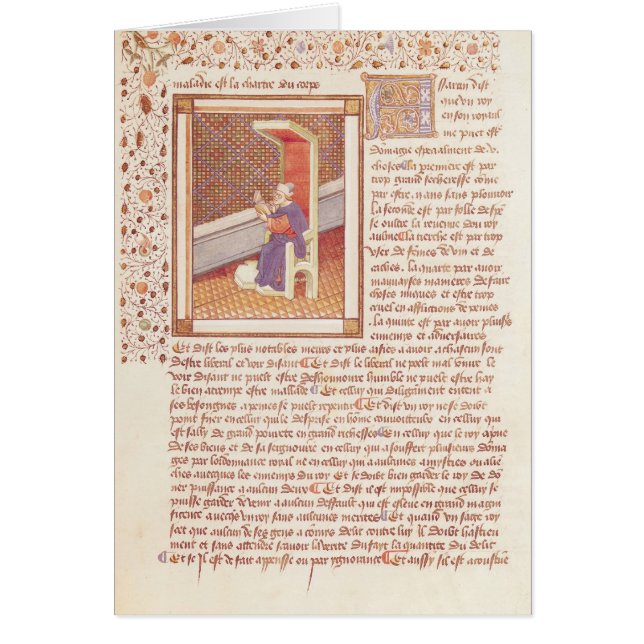 maladie est la chartre du corps
Galian dist
que un roy
en son royaul
me puet est
domagie especialment de v.
choses La premiere est par
trop grand secheresse come
par estre .ij. ans sans plouvoir
La seconde est par folle despe
se oultre la revenue du roy
aulme La tierche est par trop
user de femes de vin et de
caches. La quarte par avoir
mauvaises manieres de faire
choses iniques et estre trop
cruel en afflictions de peines
. La quinte est par avoir pluiss
ennemys et adversaires
Et dist les plus notables meurs et plus a avoir a chascun sont
destre liberal et voir disant Et dist le liberal ne poelt mal vivre le
voir disant ne puelt estre deshounoure humble ne puelt estre hay
le bien atrempe estre malade Et celluy qui diligament entent a
ses besongnes a peines se puelt repentir Et dist un roy ne se doibt
point fyer en celluy qui le desprise en home couvoitteux en celluy qui
est sally de grand povrete en grand richesses En celluy que le roy a prive
de ses biens et de sa seignourie en celluy qui a souffert plusieurs doma
ges par lordonnance roial ne en celluy qui a aulcunes amysties ou alian
ches avecques les ennemys du roy Et se doibt bien garder le roy de do
ner puissance a aulcun deux Et dist il est impossible que celluy se
puisse garder de venir a aulcun deffault qui est esleve en grand magni
ficence avecques un roy sans aulcunes merites Et quand un sage roy
scet que aulcun de ses gens a comis delit contre luy il doibt hastieu
ment et sans attendre savoir la verite du fayt la quantite du delit
Et se il est de fait appense ou par ygnorance Et aussy sil est acoustume